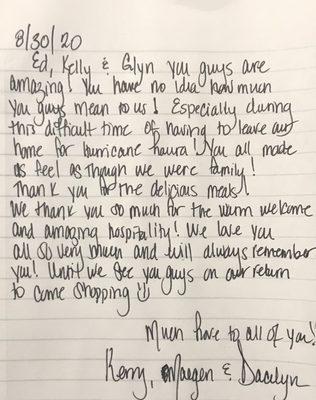 8/30/20
Ed, Kelly & Glyn you guys are
amazing! You have no idea how much
you guys mean to us! Especially during
this difficult time of having to leave our
home for hurricane Laura! You all made
us feel as though we were family!
Thank you for the delicious meals!
We thank you so much for the warm welcome
and amazing hospitality! We love you
all so very much and will always remember
you! Until we see you guys on our return
to come shopping ☺
Much love to all of you!
Kerry, Maegen &